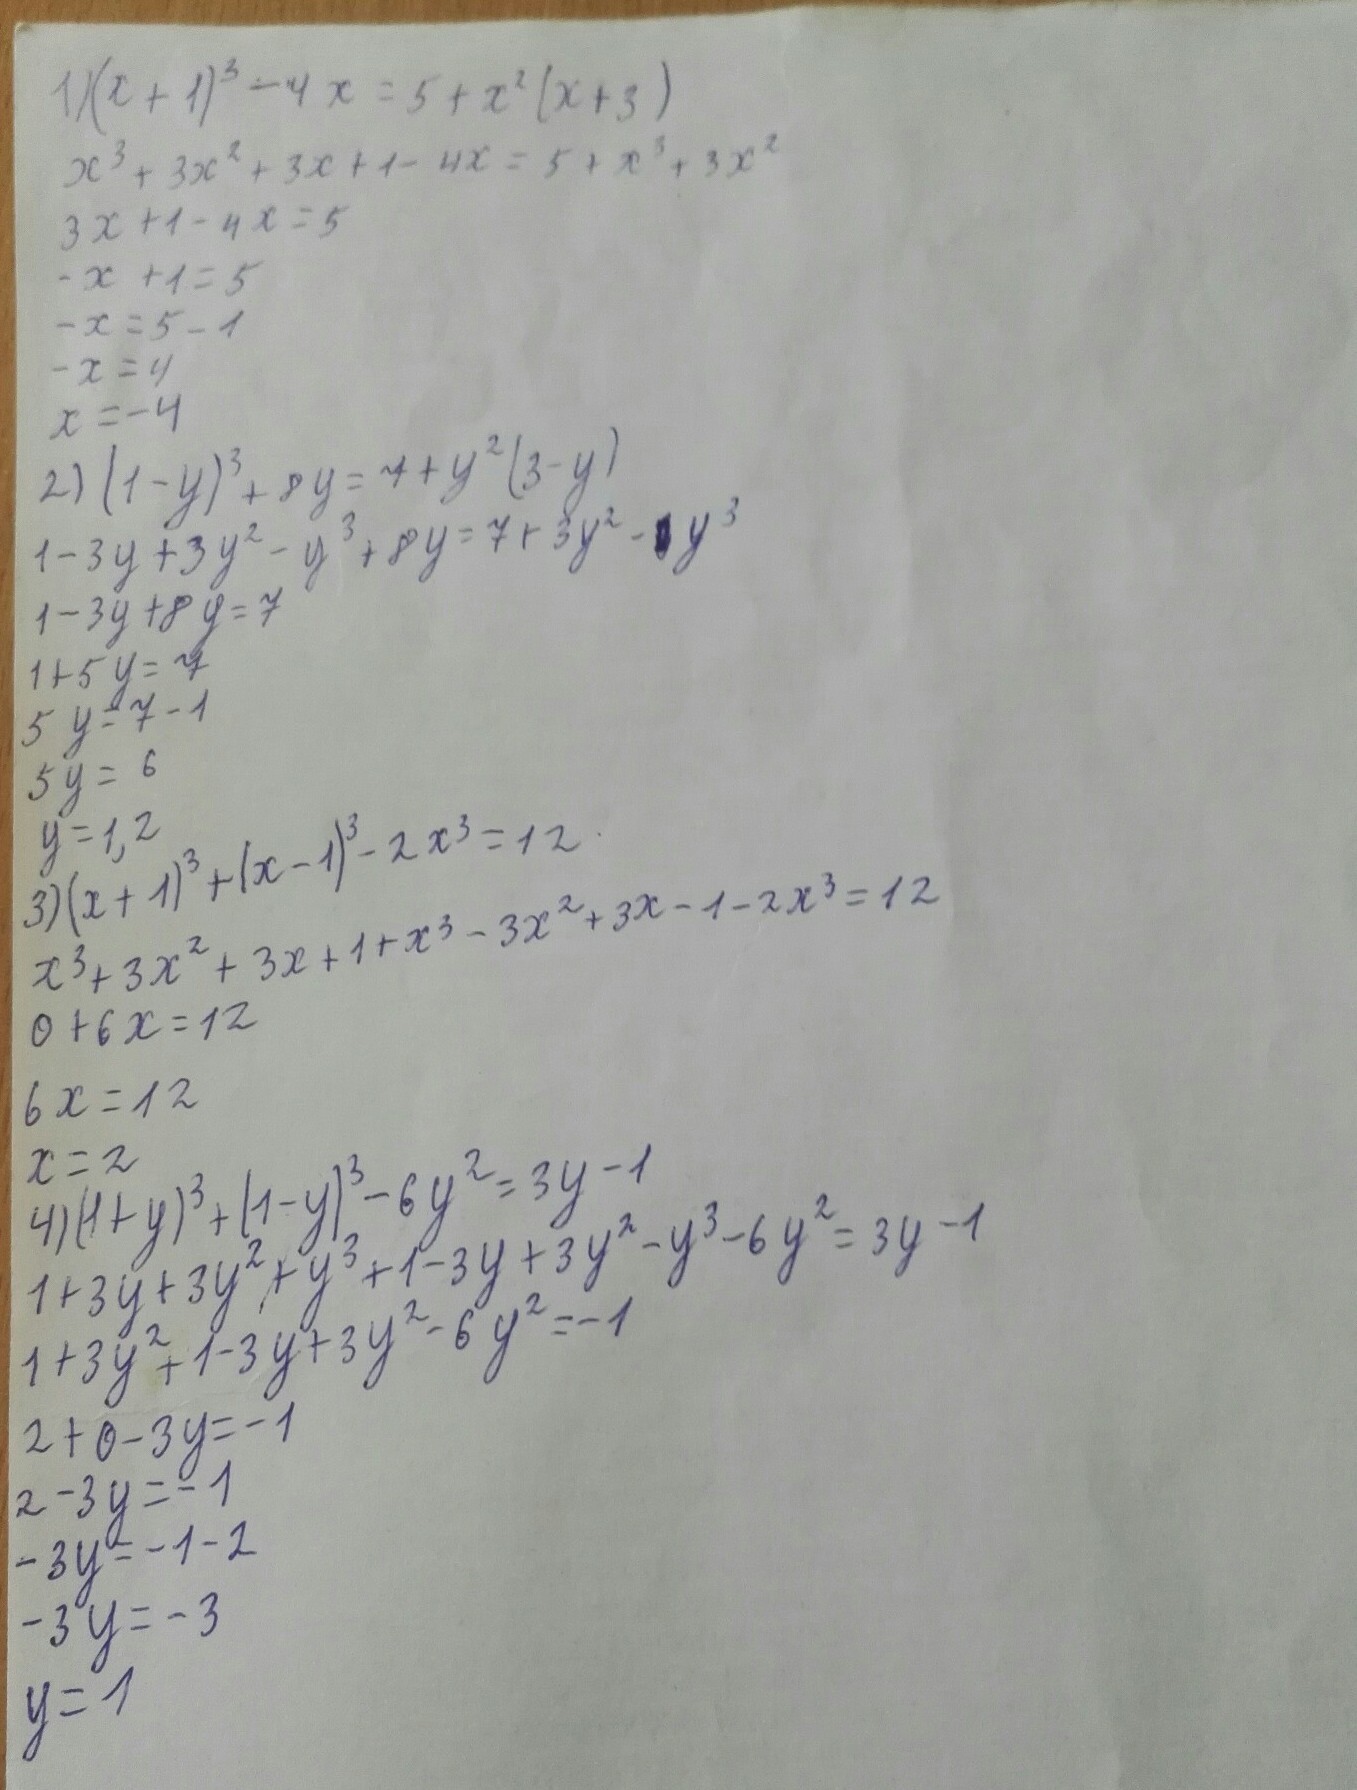 1) (x + 1)³ - 4x = 5 + x² (x + 3)
x³ + 3x² + 3x + 1 - 4x = 5 + x³ + 3x²
3x + 1 - 4x = 5
-x + 1 = 5
-x = 5 - 1
-x = 4
x = -4
2) (1 - y)³ + 8y = 7 + y² (3 - y)
1 - 3y + 3y² - y³ + 8y = 7 + 3y² - y³
1 - 3y + 8y = 7
1 + 5y = 7
5y = 7 - 1
5y = 6
y = 1,2
3) (x + 1)³ + (x - 1)³ - 2x³ = 12
x³ + 3x² + 3x + 1 + x³ - 3x² + 3x - 1 - 2x³ = 12
0 + 6x = 12
6x = 12
x = 2
4) (1 + y)³ + (1 - y)³ - 6y² = 3y - 1
1 + 3y + 3y² + y³ + 1 - 3y + 3y² - y³ - 6y² = 3y - 1
1 + 3y² + 1 - 3y + 3y² - 6y² = -1
2 + 0 - 3y = -1
2 - 3y = -1
-3y = -1 - 2
-3y = -3
y = 1